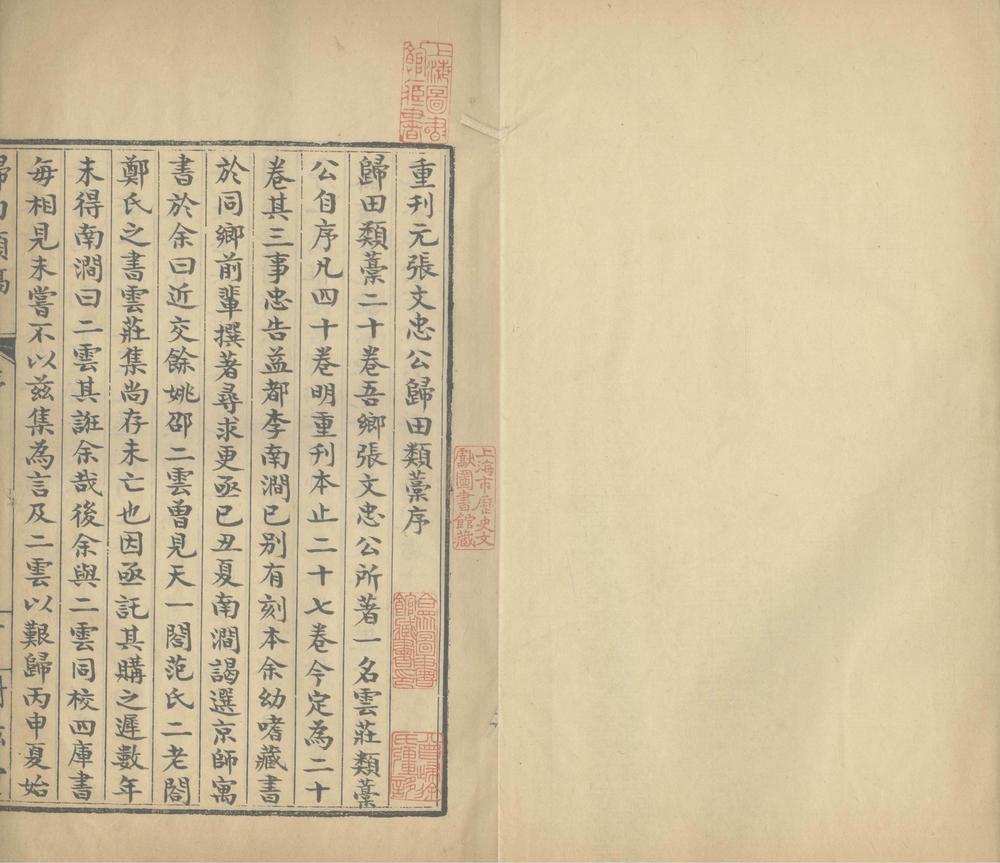 重刊元張文忠公歸田類藁序
歸田類藁二十卷吾鄉張文忠公所著一名雲莊類藁
公自序凡四十卷明重刊本止二十七卷今定為二十
卷其三事忠告益都李南澗已别有刻本余幼嗜藏書
於同鄉前輩撰著尋求更亟已丑夏南澗謁選京師寓
書於余曰近交餘姚邵二雲曽見天一閣范氏二老閣
鄭氏之書雲莊集尚存未亡也因亟託其購之遲數年
未得南澗曰二雲其誑余哉後余與二雲同校四庫書
每相見未嘗不以兹集為言及二雲以艱歸丙申夏始
上海圖書館藏書
上海市歷史文獻圖書館藏